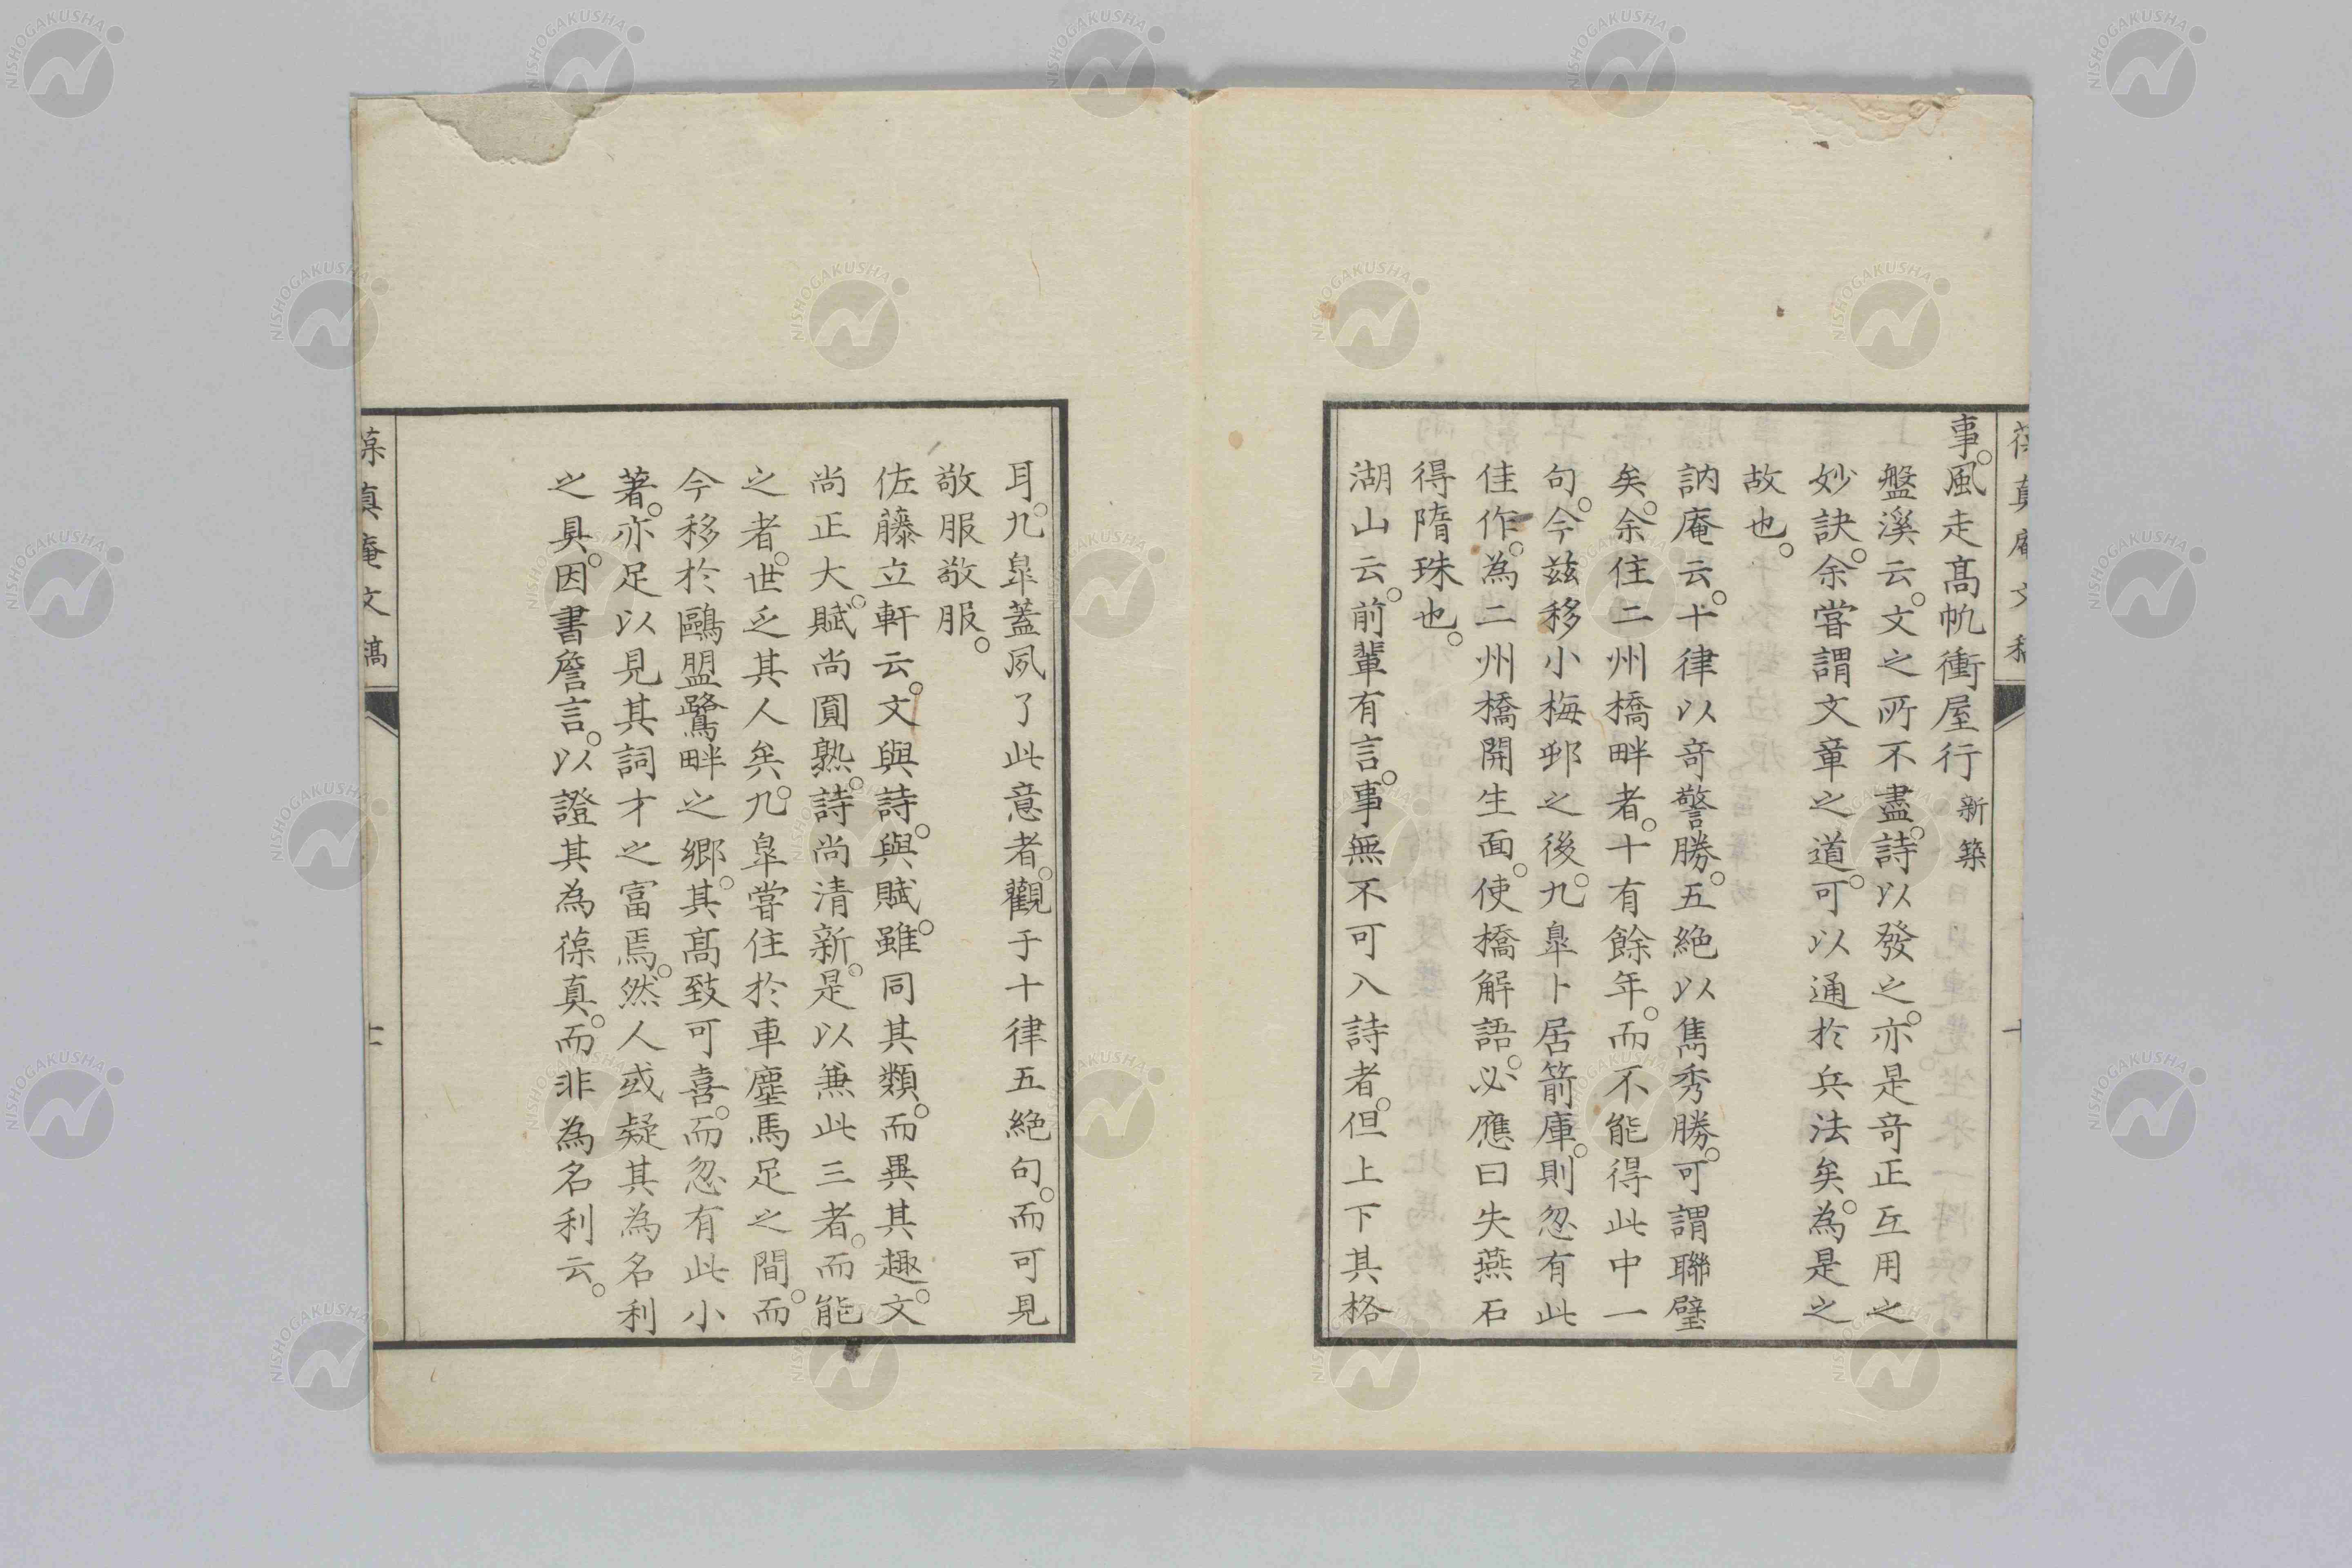 事。風走高帆衝屋行 新築
盤溪云。文之所不盡。詩以發之。亦是竒正互用之
妙訣。余甞謂文章之道。可以通於兵法矣。為是之
故也。
訥庵云。十律以竒警勝。五絶以雋秀勝。可謂聯璧
矣。余住二州橋畔者。十有餘年。而不能得此中一
句。今兹移小梅邨之後。九臯卜居箭庫。則忽有此
佳作。為二州橋開生面。使橋解語。必應曰失燕石
得隋珠也。
湖山云。前輩有言。事無不可入詩者。但上下其格
耳。九臯蓋夙了此意者。觀于十律五絶句。而可見
敬服敬服。
佐藤立軒云。文與詩。與賦。雖同其類。而異其趣。文
尚正大。賦尚圓熟。詩尚清新。是以兼此三者。而能
之者。世乏其人矣。九臯甞住於車塵馬足之間。而
今移於鷗盟鷺畔之郷。其高致可喜。而忽有此小
著。亦足以見其詞才之富焉。然人或疑其為名利
之具。因書詹言。以證其為葆真。而非為名利云。
葆真庵文稿
NISHOGAKUSHA